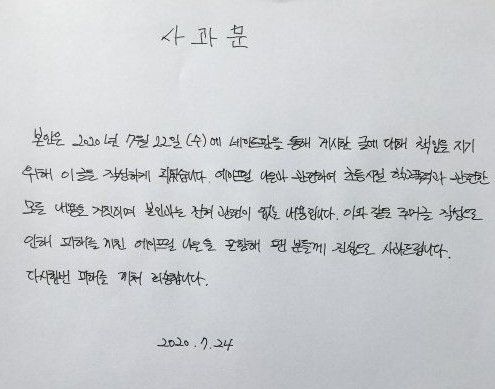 사 과 문
본인은 2020년 7월 22일 (수)에 네이트판을 통해 게시한 글에 대해 책임을 지기
위해 이글을 작성하게 되었습니다. 에이프릴 나은과 관련하여 초등시절 학교폭력과 관련한
모든 내용은 거짓이며 본인과는 전혀 관련이 없는 내용입니다. 이와 같은 루머글 작성으로
인해 피해를 끼친 에이프릴 나은을 포함해 팬 분들께 진심으로 사과드립니다.
다시한번 피해를 끼쳐 죄송합니다.
2020. 7. 24